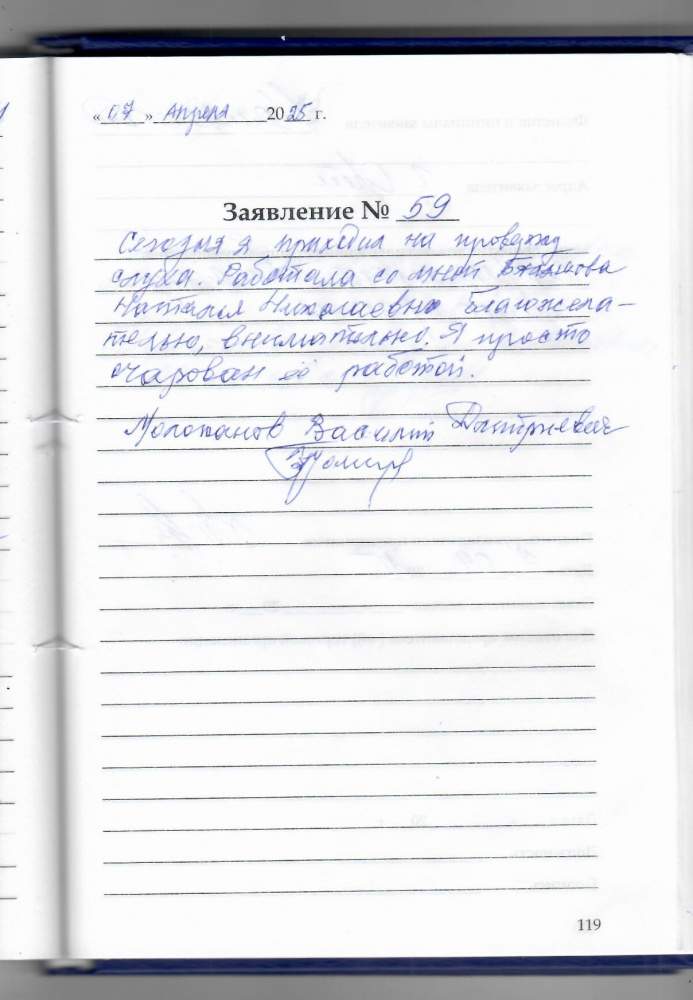 « 07 » Апреля 2025 г.
Заявление № 59
Сегодня я приходил на проверку
слуха. Работала со мной
Наталья Николаевна благожела-
тельно, внимательно. Я просто
очарован её работой.
Василий Дмитриевич
119